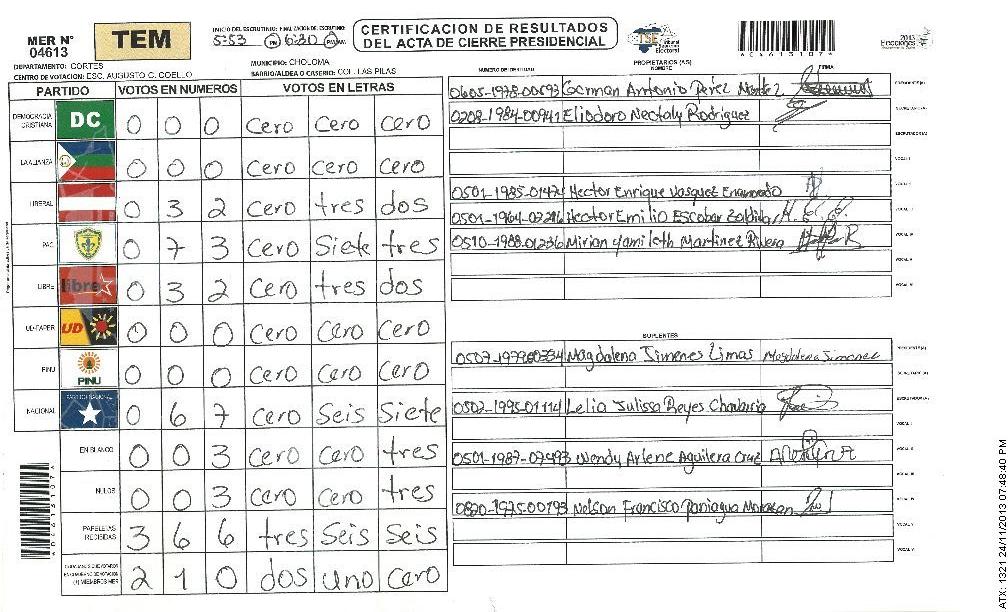 MER N° 04613
TEM
INICIO DEL ESCRUTINIO: FINALIZACION DE ESCRUTINIO:
5:53 PM 6:30 PM
CERTIFICACION DE RESULTADOS
DEL ACTA DE CIERRE PRESIDENCIAL
TSE
2013
Elecciones
DEPARTAMENTO: CORTES
MUNICIPIO: CHOLOMA
CENTRO DE VOTACION: ESC. AUGUSTO C. COELLO
BARRIO/ALDEA O CASERIO: COL. LAS PILAS
PARTIDO VOTOS EN NUMEROS VOTOS EN LETRAS
DEMOCRACIA CRISTIANA DC 0 0 0 Cero Cero Cero
LA ALIANZA 0 0 0 Cero Cero Cero
LIBERAL 0 3 2 Cero tres dos
PAC 0 7 3 Cero Siete tres
LIBRE libre 0 3 2 Cero tres dos
UD-FAPER UD 0 0 0 Cero Cero Cero
PINU PINU 0 0 0 Cero Cero Cero
NACIONAL 0 6 7 Cero Seis Siete
EN BLANCO 0 0 3 Cero Cero tres
NULOS 0 0 3 Cero Cero tres
PAPELETAS RECIBIDAS 3 6 6 tres Seis Seis
2 1 0 dos uno cero
NUMERO DE IDENTIDAD PROPIETARIOS (AS) NOMBRE FIRMA
0605-1978-00593 German Antonio Perez
0208-1984-00941 Eliodoro Nectaly Rodriguez
0501-1985-01474 Hector Enrique Vasquez Enamorado
Hector Emilio Escobar Zaldivar
0510-1988-01236 Mirian Yamileth Martinez Rivera
SUPLENTES
Magdalena Jimenes Limas Magdalena Jimenes
0502-1995-01114 Lelia Julissa Reyes Chavarria
0501-1987-07493 Wendy Arlene Aguilera Cruz
0820-1975-00193 Nelson Francisco Paniagua
A04613107
ATX: 1321 24/11/2013 07:48:40 PM